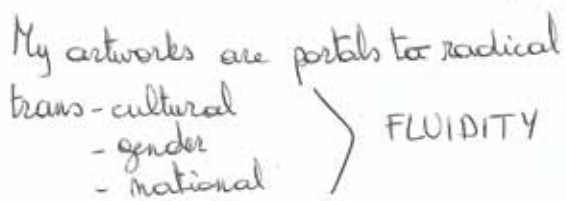 My artworks are portals to radical
trans-cultural
- gender
- national
FLUIDITY